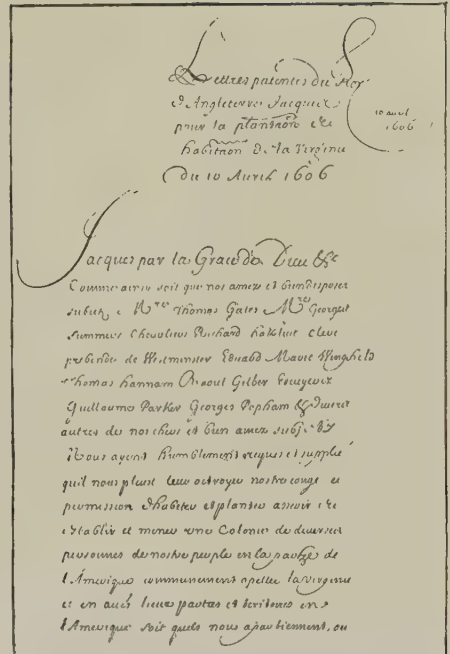 Lettres patentes du Roy
d'Angleterre Jacques
pour la plantaõn et
habitaõn de la Virginie
Du 10 Avril 1606
10 avril
1606
Jacques par la Grace de Dieu &c
Comme ainsi soit que nos amez et bien disposez
subietz Mres Thomas Gates Mres Georges
Summers Chevaliers Richard hakluit clerc
prebende de Westminster Eduard Marie Winghefeld
Thomas hannam Raoul Gilber Escuyers
Guillaume Parker Georges Popham & diverses
autres de nos chers et bien amez subjetz
Nous ayent humblement requis et supplié
quil nous pleust leur octroyer nostre congé et
permission d'habiter et planter asseoir et
establir et mener une Colonie de diverses
personnes de nostre peuple en la partie de
l'Amerique communement apellee la virginie
et en aucũs lieux partas et teritores en
l'Amerique soit quels nous apartiennent, ou